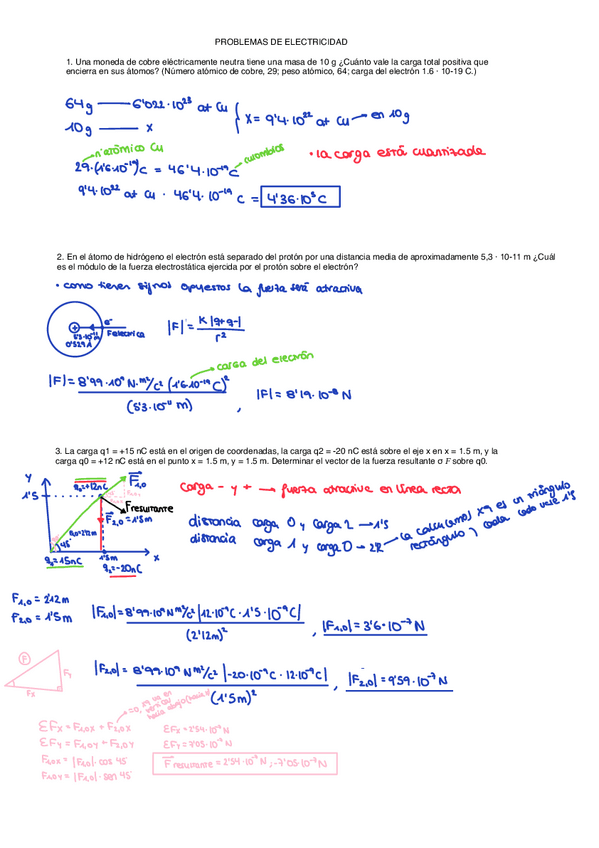 PROBLEMAS DE ELECTRICIDAD
1. Una moneda de cobre eléctricamente neutra tiene una masa de 10 g ¿Cuánto vale la carga total positiva que
encierra en sus átomos? (Número atómico de cobre, 29; peso atómico, 64; carga del electrón 1.6 · 10-19 C.)
64g — 6'022·10²³ at Cu
10g — x
x = 9'4·10²² at Cu → en 10g
nºatómico Cu
29·(1'6·10⁻¹⁹)C = 46'4·10⁻¹⁹C
culombios
• la carga está cuantizada
9'4·10²² at Cu · 46'4·10⁻¹⁹ C = 4'36·10⁵ C
2. En el átomo de hidrógeno el electrón está separado del protón por una distancia media de aproximadamente 5,3 · 10-11 m ¿Cuál
es el módulo de la fuerza electrostática ejercida por el protón sobre el electrón?
• como tienen signos opuestos la fuerza será atractiva
e⁻
Felectrica
5'3·10⁻¹¹
0'529Å
|F| = K|q+q-| / r²
carga del electrón
|F| = 8'99·10⁹ N·m²/c² (1'6·10⁻¹⁹ C)² / (5'3·10⁻¹¹ m) , |F| = 8'19·10⁻⁸ N
3. La carga q1 = +15 nC está en el origen de coordenadas, la carga q2 = -20 nC está sobre el eje x en x = 1.5 m, y la
carga q0 = +12 nC está en el punto x = 1.5 m, y = 1.5 m. Determinar el vector de la fuerza resultante σ F sobre q0.
y
q₀=+12nC
F₁,₀
1'5
Fresultante
F₂,₀ = 1'5m
45°
q₁=15nC
1'5m
x
q₂=-20nC
carga - y + → fuerza atractiva en línea recta
distancia carga 0 y carga 2 → 1'5
distancia carga 1 y carga 0 →
la calculamos xq es un triángulo
rectángulo y cada lado vale 1'5
F₁,₀ = 2'12m
F₂,₀ = 1'5m
|F₁,₀| = 8'99·10⁹ N m²/c² |12·10⁻⁹C · 1'5·10⁻⁹C| / (2'12m)² , |F₁,₀| = 3'6·10⁻⁷ N
F
Fy
Fx
|F₂,₀| = 8'99·10⁹ N m²/c² |-20·10⁻⁹C · 12·10⁻⁹C| / (1'5m)² , |F₂,₀| = 9'59·10⁻⁷ N
=0, xq va en
ΣFx = F₁,₀x + F₂,₀x
ΣFy = F₁,₀y + F₂,₀y
F₁,₀x = |F₁,₀|·cos 45
F₁,₀y = |F₁,₀|·sen 45
ΣFx = 2'54·10⁻⁷ N
ΣFy = 7'05·10⁻⁷ N
Fresultante = 2'54·10⁻⁷ N , -7'05·10⁻⁷ N